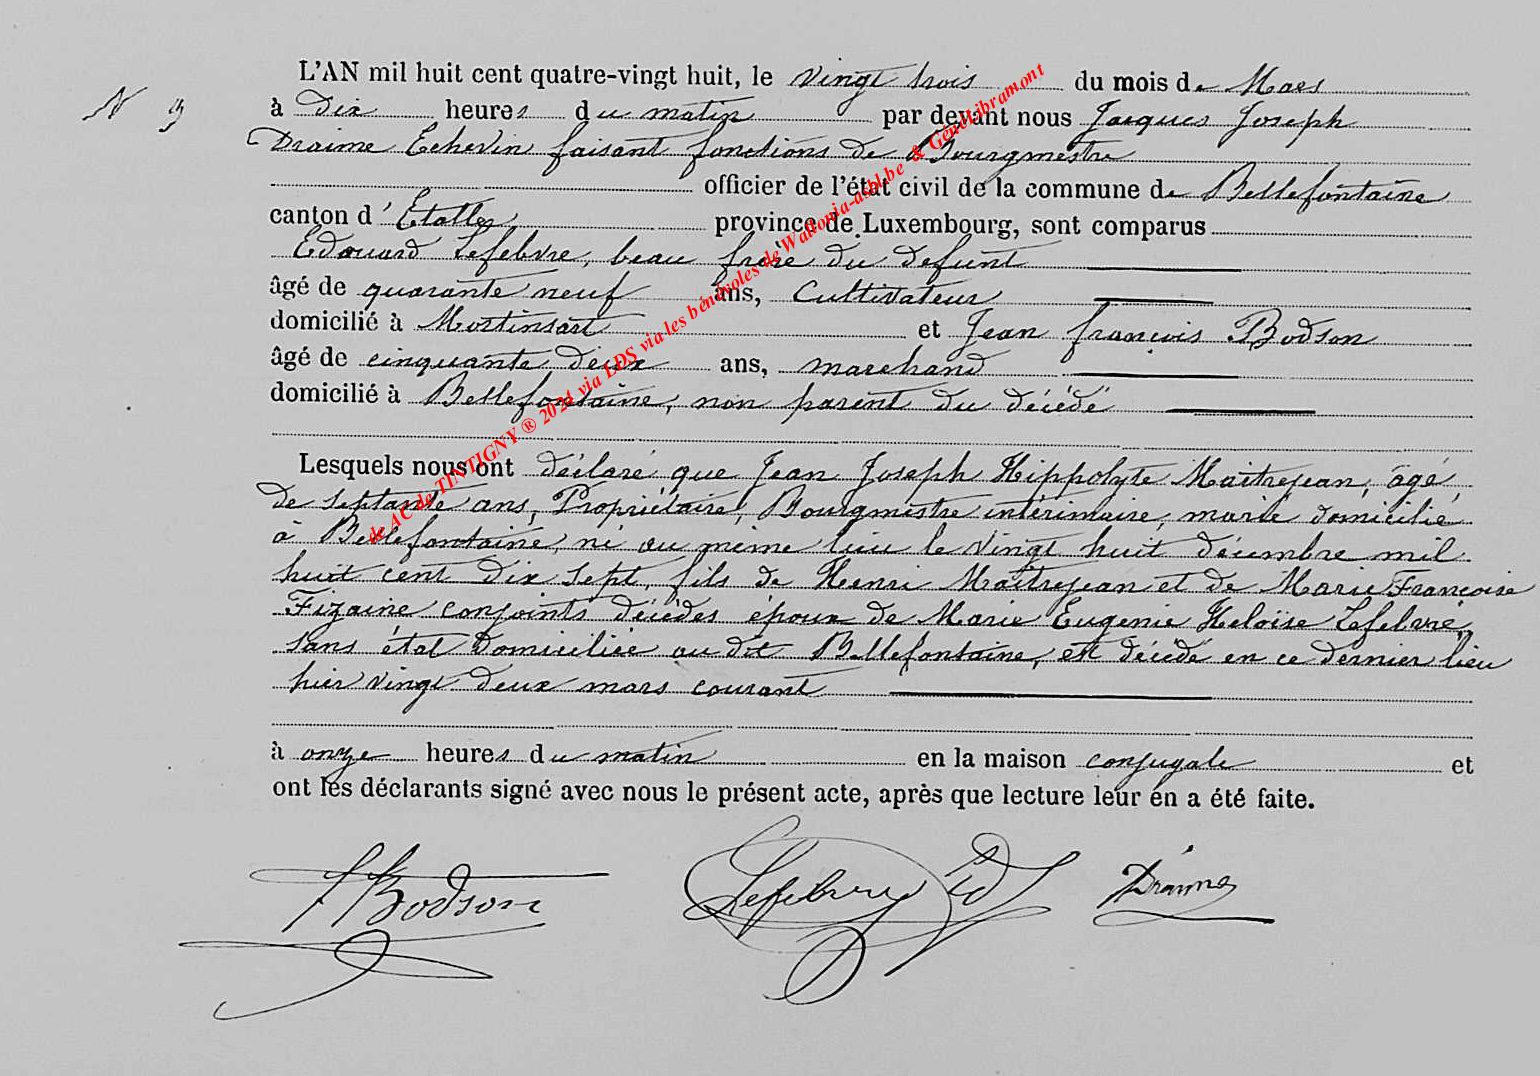 L'AN mil huit cent quatre-vingt huit, le vingt trois du mois de Mars
N 9
à dix heures du matin par devant nous Jacques Joseph
Draime Echevin faisant fonctions de Bourgmestre
officier de l'état civil de la commune de Bellefontaine
canton d'Etalle province de Luxembourg, sont comparus
Edouard Lefebvre, beau frère du défunt
âgé de quarante neuf ans, Cultivateur
domicilié à Mortinsart et Jean françois Bodson
âgé de cinquante deux ans, marchand
domicilié à Bellefontaine, non parent du décédé
Lesquels nous ont déclaré que Jean Joseph Hippolyte Maitrejean, âgé
de septante ans, Propriétaire, Bourgmestre intérimaire, marié domicilié
à Bellefontaine, né au même lieu le vingt huit décembre mil
huit cent dix sept, fils de Henri Maitrejean et de Marie Françoise
Fizaine conjoints décédés époux de Marie Eugenie Heloïse Lefebvre,
sans état domiciliée au dit Bellefontaine, est décédé en ce dernier lieu
hier vingt deux mars courant
à onze heures du matin en la maison conjugale et
ont les déclarants signé avec nous le présent acte, après que lecture leur en a été faite.
JBodson Lefebvre Ed Draime
de AC de TINTIGNY ® 2021 via LDS via les bénévoles de Wallonia-asbl.be & GenéLibramont